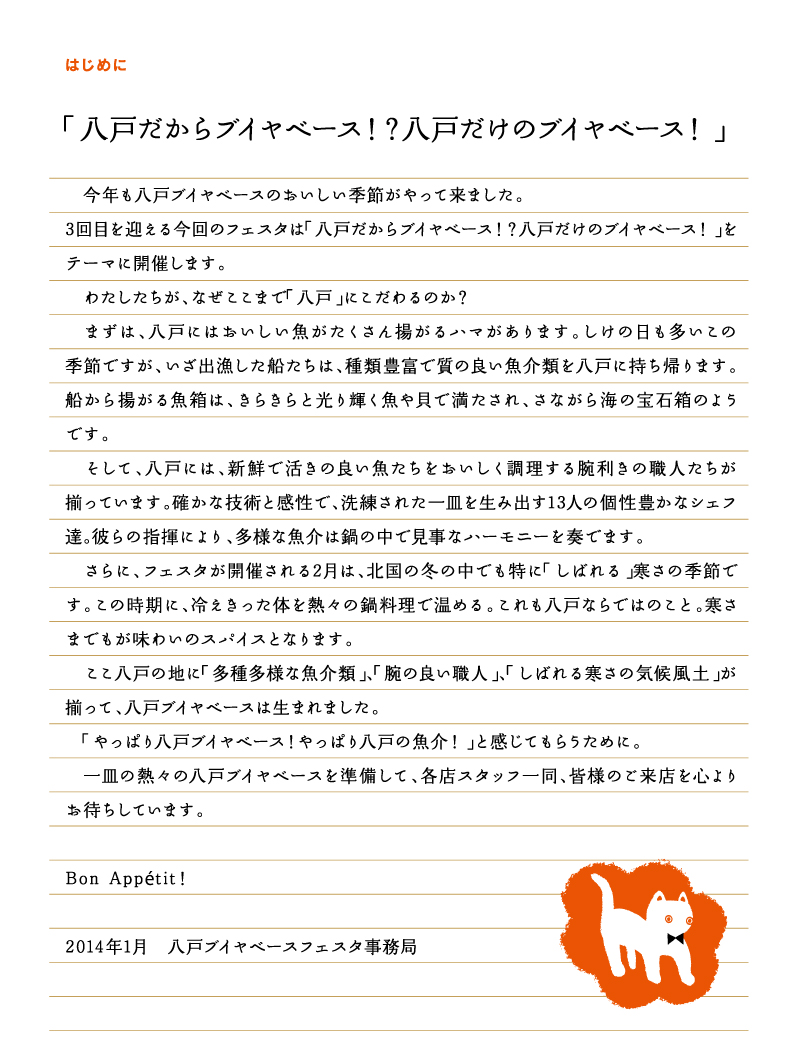 はじめに
「八戸だからブイヤベース！？八戸だけのブイヤベース！」
　今年も八戸ブイヤベースのおいしい季節がやって来ました。
3回目を迎える今回のフェスタは「八戸だからブイヤベース！？八戸だけのブイヤベース！」を
テーマに開催します。
　わたしたちが、なぜここまで「八戸」にこだわるのか？
　まずは、八戸にはおいしい魚がたくさん揚がるハマがあります。しけの日も多いこの
季節ですが、いざ出漁した船たちは、種類豊富で質の良い魚介類を八戸に持ち帰ります。
船から揚がる魚箱は、きらきらと光り輝く魚や貝で満たされ、さながら海の宝石箱のよう
です。
　そして、八戸には、新鮮で活きの良い魚たちをおいしく調理する腕利きの職人たちが
揃っています。確かな技術と感性で、洗練された一皿を生み出す13人の個性豊かなシェフ
達。彼らの指揮により、多様な魚介は鍋の中で見事なハーモニーを奏でます。
　さらに、フェスタが開催される2月は、北国の冬の中でも特に「しばれる」寒さの季節で
す。この時期に、冷えきった体を熱々の鍋料理で温める。これも八戸ならではのこと。寒さ
までもが味わいのスパイスとなります。
　ここ八戸の地に「多種多様な魚介類」、「腕の良い職人」、「しばれる寒さの気候風土」が
揃って、八戸ブイヤベースは生まれました。
　「やっぱり八戸ブイヤベース！やっぱり八戸の魚介！」と感じてもらうために。
　一皿の熱々の八戸ブイヤベースを準備して、各店スタッフ一同、皆様のご来店を心より
お待ちしています。
Bon Appétit！
2014年1月　八戸ブイヤベースフェスタ事務局